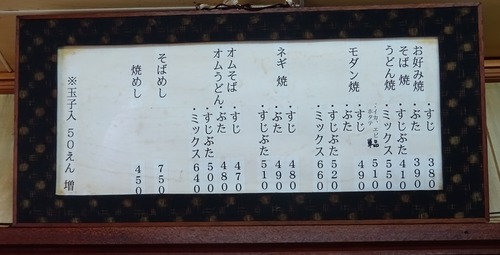 お好み焼
そば 焼
うどん焼
・すじ 380
・ぶた 390
・すじぶた 410
・ミックス 550
・イカ、エビ
ホタテ 510
モダン焼
・すじ 490
・ぶた
・すじぶた 520
・ミックス 660
ネギ 焼
・すじ 480
・ぶた 490
・すじぶた 510
オムそば
オムうどん
・すじ 470
・ぶた 480
・すじぶた 500
・ミックス 640
そばめし 750
焼めし 450
※玉子入 50えん 増